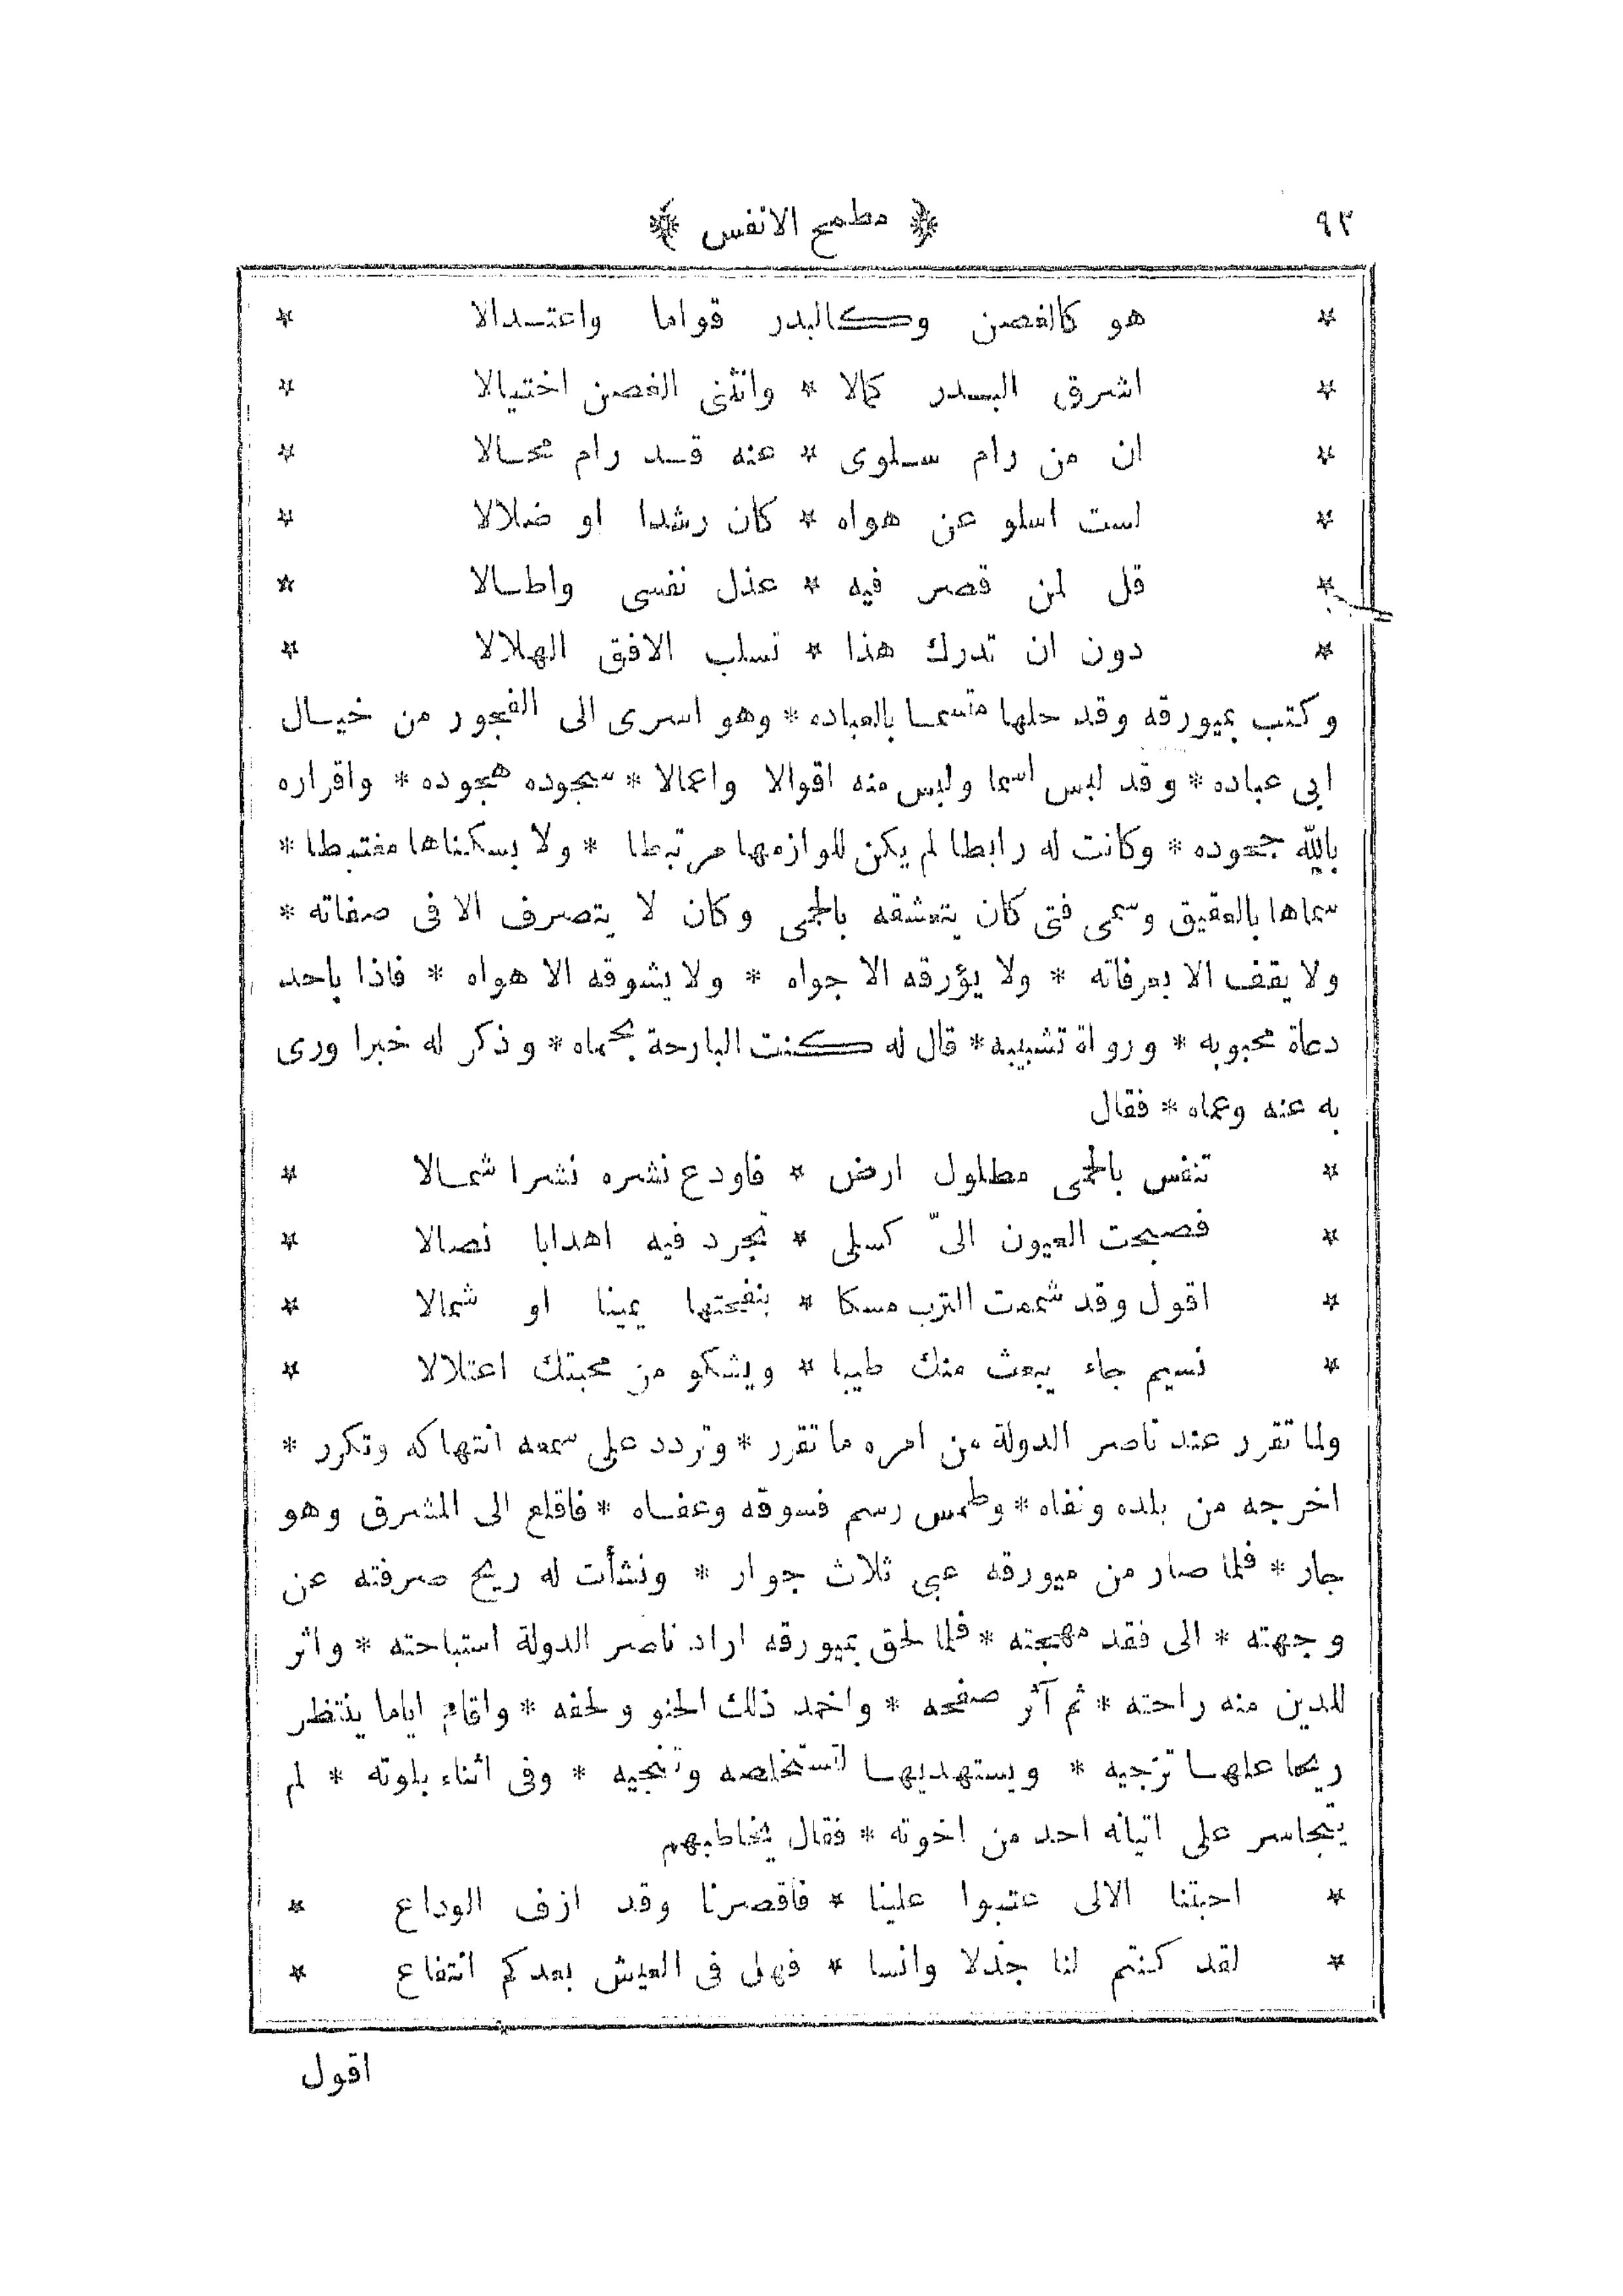 ٩٢ ﴿ مطمح الانفس ﴾
* هو كالغصن وكالبدر قواما واعتدالا *
* اشرق البدر كمالا * وانثنى الغصن اختيالا *
* ان من رام سلوى * عنه قد رام محالا *
* لست اسلو عن هواه * كان رشدا او ضلالا *
* قل لمن قصر فيه * عذل نفسى واطالا *
* دون ان تدرك هذا * تسلب الافق الهلالا *
وكتب بميورقه وقد حلها متسما بالعباده * وهو اسرى الى الفجور من خيال
ابى عباده * وقد لبس اسما ولبس منه اقوالا واعمالا * سجوده هجوده * واقراره
بالله جحوده * وكانت له رابطا لم يكن للوازمها مرتبطا * ولا بسكناها مغتبطا *
سماها بالعقيق وسمى فتى كان يتعشقه بالحمى وكان لا يتصرف الا فى صفاته *
ولا يقف الا بعرفاته * ولا يؤرقه الا جواه * ولا يشوقه الا هواه * فاذا باحد
دعاة محبوبه * ورواة تشبيبه * قال له كنت البارحة بحماه * وذكر له خبرا ورى
به عنه وعماه * فقال
* تنفس بالحمى مطلول ارض * فاودع نشره نشرا شمالا *
* فصبحت العيون الىّ كسلى * تجرد فيه اهدابا نصالا *
* اقول وقد شممت الترب مسكا * بنفحتها يمينا او شمالا *
* نسيم جاء يبعث منك طيبا * ويشكو من محبتك اعتلالا *
ولما تقرر عند ناصر الدولة من امره ما تقرر * وتردد على سمعه انتهاكه وتكرر *
اخرجه من بلده ونفاه * وطمس رسم فسوقه وعفاه * فاقلع الى المشرق وهو
جار * فلما صار من ميورقه عبى ثلاث جوار * ونشأت له ريح صرفته عن
وجهته * الى فقد مهجته * فلما لحق بميورقه اراد ناصر الدولة استباحته * واثر
للدين منه راحته * ثم آثر صفحه * واخمد ذلك الحنو ولحفه * واقام اياما ينتظر
ريحا علها تزجيه * ويستهديها لتستخلصه وتنجيه * وفى اثناء بلوته * لم
يتجاسر على اتيانه احد من اخوته * فقال يخاطبهم
* احبتنا الالى عتبوا علينا * فاقصرنا وقد ازف الوداع *
* لقد كنتم لنا جذلا وانسا * فهل فى العيش بعدكم انتفاع *
اقول